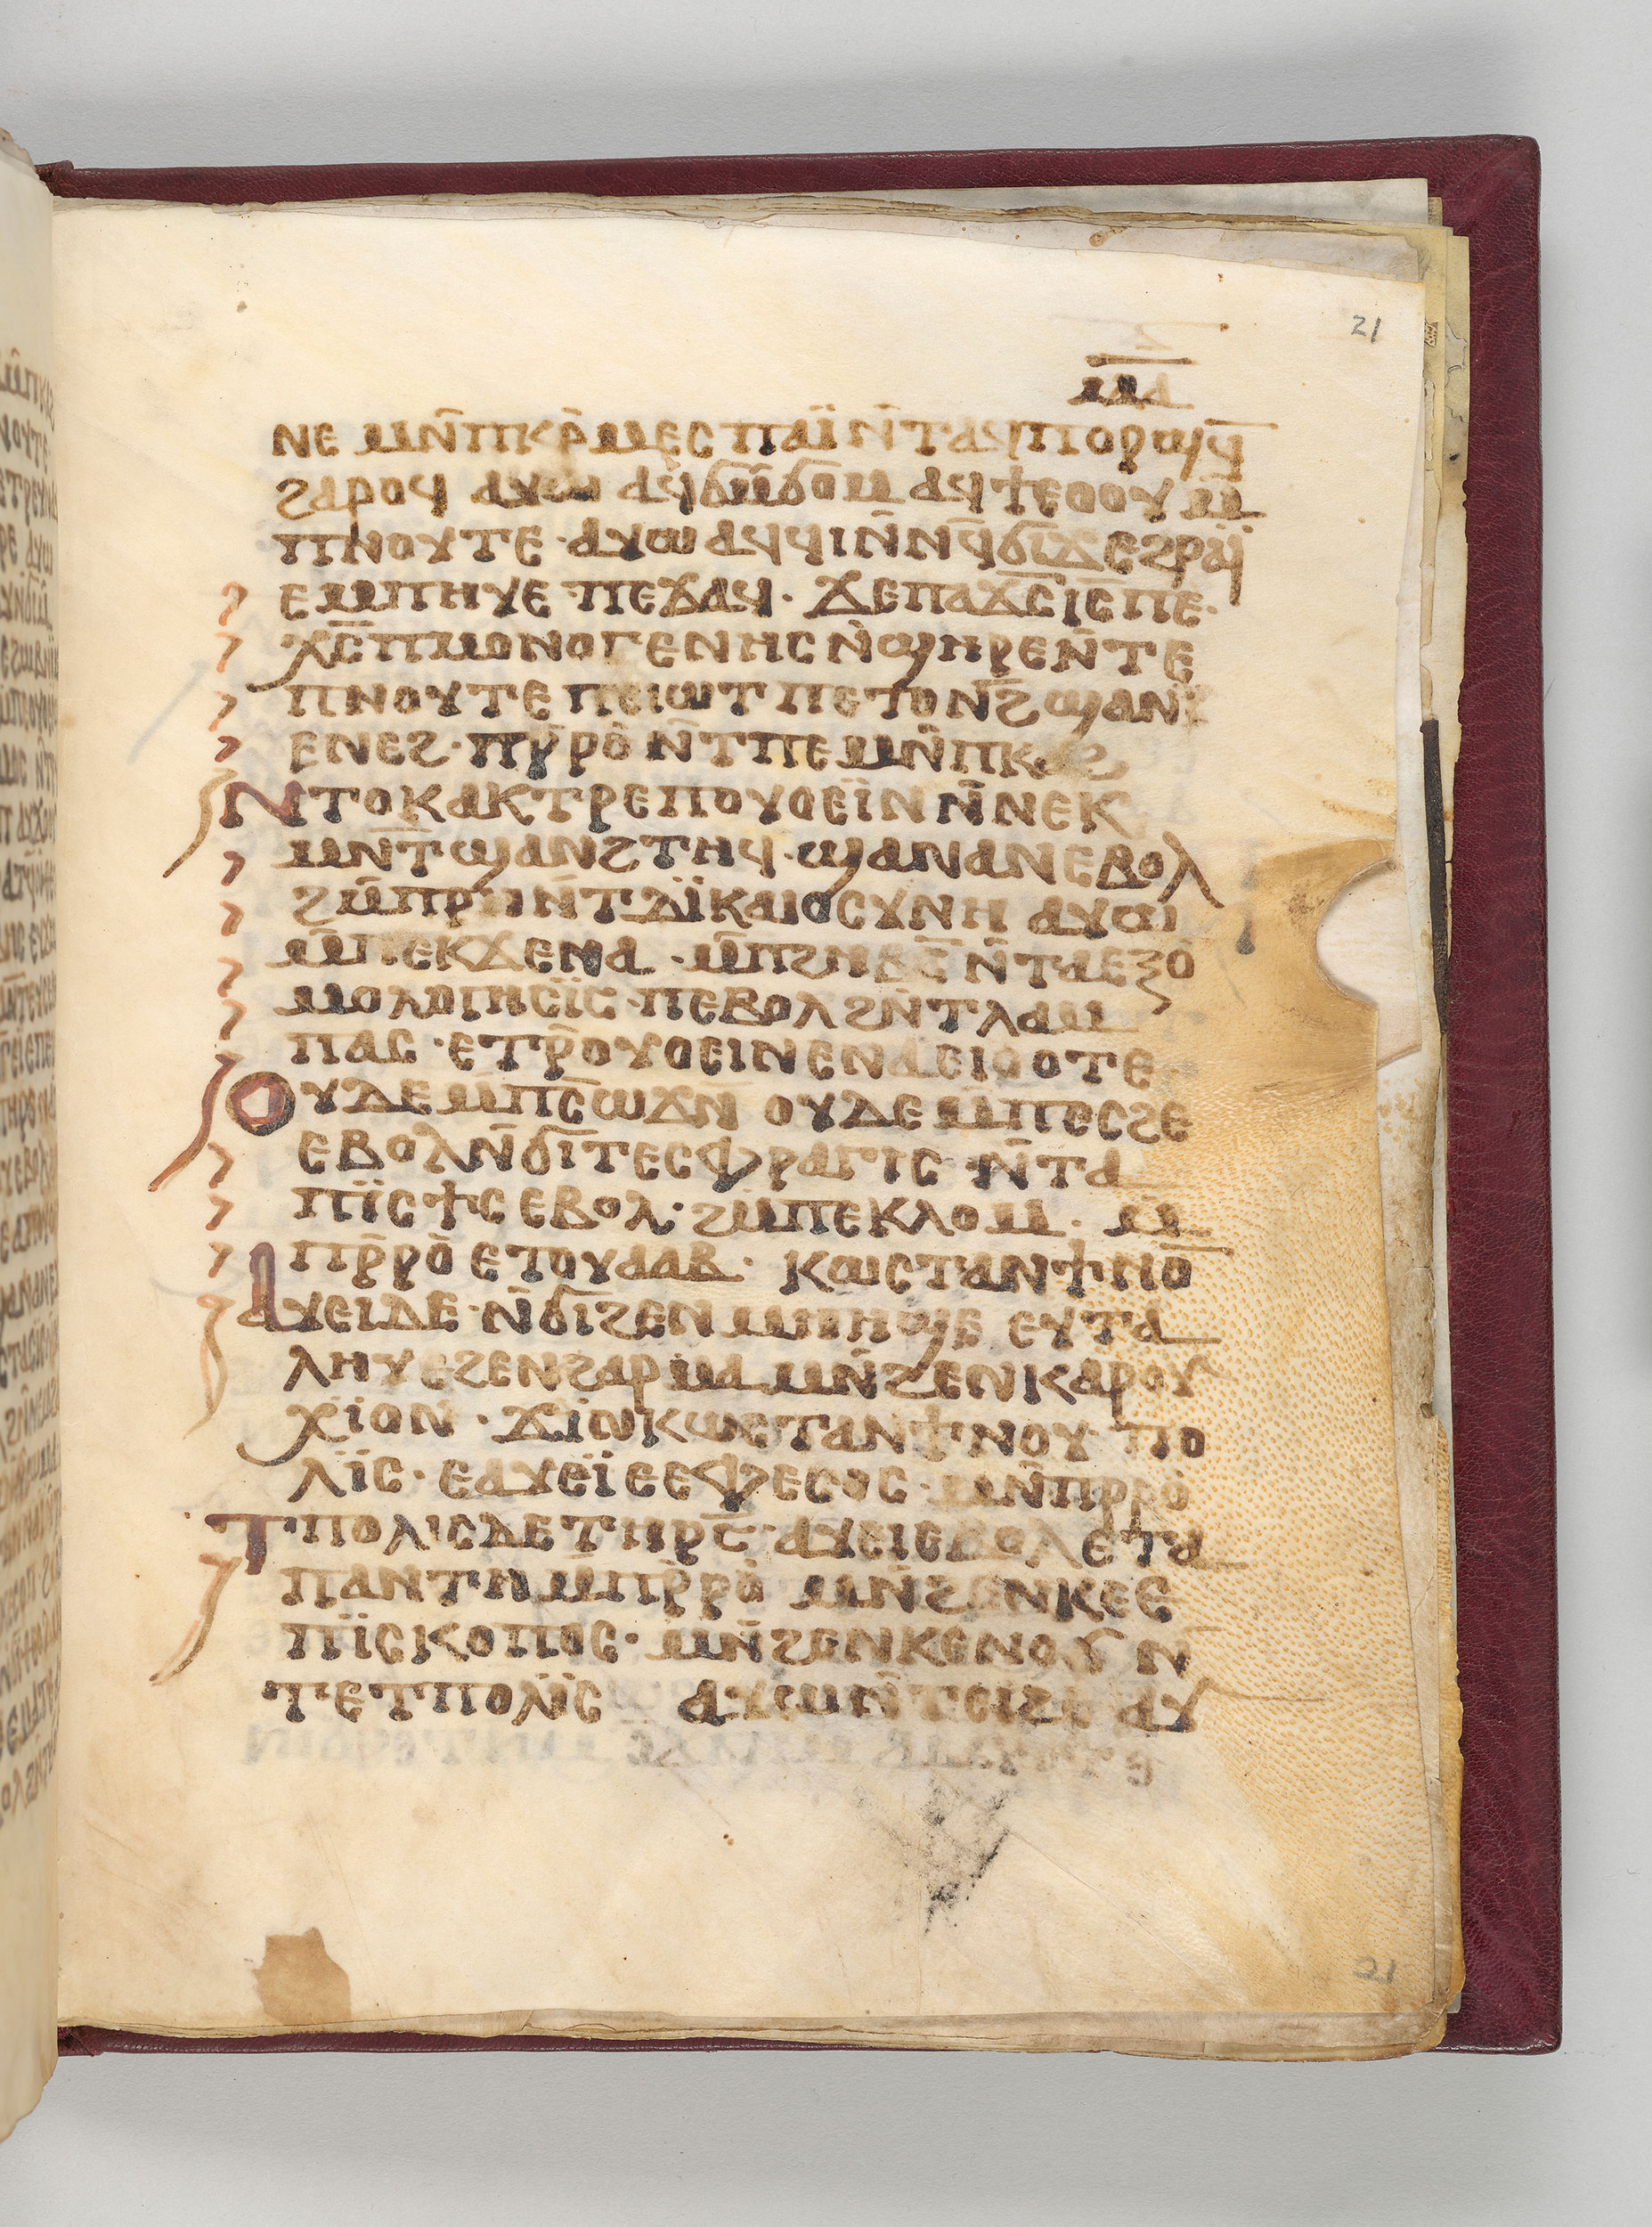 21
ⲙⲁ
ⲛⲉ ⲙⲛ̄ⲡⲕⲣ̄ⲙⲉⲥ ⲡⲁⲓ̈ ⲛ̄ⲧⲁϥⲡⲟⲣϣϥ̄
ϩⲁⲣⲟϥ ⲁⲩⲱ ⲁϥϭⲙ̄ϭⲟⲙ ⲁϥϯⲉⲟⲟⲩ ⲙ̄
ⲡⲛⲟⲩⲧⲉ · ⲁⲩⲱ ⲁϥϥⲓⲛ̄ⲛϥ̄ϭⲓϫ ⲉϩⲣⲁⲓ̈
ⲉⲙⲡⲏⲩⲉ · ⲡⲉϫⲁϥ · ϫⲉⲡⲁϫⲥ̄ ⲓⲥ̄ ⲡⲉ
ⲭⲥ̄ ⲡⲙⲟⲛⲟⲅⲉⲛⲏⲥ ⲛ̄ϣⲏⲣⲉ ⲛ̄ⲧⲉ
ⲡⲛⲟⲩⲧⲉ ⲡⲉⲓⲱⲧ ⲡⲉⲧⲟⲛϩ̄ ϣⲁⲛⲓ
ⲉⲛⲉϩ · ⲡⲣ̄ⲣⲟ̀ ⲛ̄ⲧⲡⲉ ⲙⲛ̄ⲡⲕⲁϩ
ⲛ̄ⲧⲟⲕ ⲁⲕⲧⲣⲉⲡⲟⲩⲟⲉⲓ̈ⲛ ⲛ̄ⲛⲉⲕ
ⲙⲛ̄ⲧϣⲁⲛϩⲧⲏϥ · ϣⲁ ⲛⲁⲛ ⲉⲃⲟⲗ
ϩⲙ̄ⲡⲣⲏ ⲛ̄ⲧⲇⲓ̈ⲕⲁⲓⲟⲥⲩⲛⲏ ⲁⲩⲱ
ⲙ̄ⲡⲉⲕϫⲉⲛⲁ · ⲙ̄ⲡϩⲏⲃⲥ̄ ⲛ̄ⲧⲁⲉⲝⲟ̀
ⲙⲟⲗⲟⲅⲏⲥⲓ̈ⲥ · ⲡⲉⲃⲟⲗ ϩⲛ̄ⲧⲗⲁⲙ
ⲡⲁⲥ · ⲉⲧⲣ̄ⲟⲩⲟⲉⲓⲛ ⲉⲛⲁⲉⲓⲟⲧⲉ
ⲟⲩⲇⲉ ⲙⲡⲥ̄ⲱϫⲛ ⲟⲩⲇⲉ ⲙⲡⲉⲥϩⲉ
ⲉⲃⲟⲗ ⲛ̄ϭⲓ ⲧⲉⲥⲫⲣⲁⲅⲓⲥ ⲛ̄ⲧⲁ
ⲡⲓ̈ⲥϯⲥ ⲉⲃⲟⲗ · ϩⲙ̄ⲡⲉⲕⲗⲟⲙ · ⲙ̄
ⲡⲣ̄ⲣⲟ̀ ⲉⲧⲟⲩⲁⲁⲃ · ⲕⲱⲥⲧⲁⲛϯⲛⲟ̄
ⲁⲩⲉⲓ ⲇⲉ · ⲛ̄ϭⲓ ϩⲉⲛⲙⲏⲏϣⲉ ⲉⲩⲧⲁ
ⲗⲏⲩ ⲉϩⲉⲛϩⲁⲣⲙⲁ ⲙⲛ̄ϩⲉⲛⲕⲁⲣⲟⲩ
ⲭⲓⲟⲛ · ϫⲓⲛⲕⲱⲥⲧⲁⲛϯⲛⲟⲩ ⲡⲟ
ⲗⲓ̈ⲥ · ⲉⲁⲩⲉⲓ̈ ⲉⲉⲫϩⲉⲥⲟⲥ · ⲙⲛ̄ⲡⲣ̄ⲣⲟ̀
ⲧⲡⲟⲗⲓⲥ ⲇⲉ ⲧⲏⲣⲥ̄ · ⲁⲩⲉⲓ ⲉⲃⲟⲗ ⲉⲧⲁ
ⲡⲁⲛⲧⲏ ⲙ̄ⲡⲣ̄ⲣⲟ̀ ⲙⲛ̄ϩⲉⲛⲕⲉⲉ
ⲡⲓ̈ⲥⲕⲟⲡⲟⲥ · ⲙⲛ̄ϩⲉⲛⲕⲉⲛⲟϭ ⲛ̄
ⲧⲉⲧⲡⲟⲗⲓ̈ⲥ ⲁⲩⲱ ⲛ̄ⲧⲉⲓϩⲉ ⲁⲩ
21